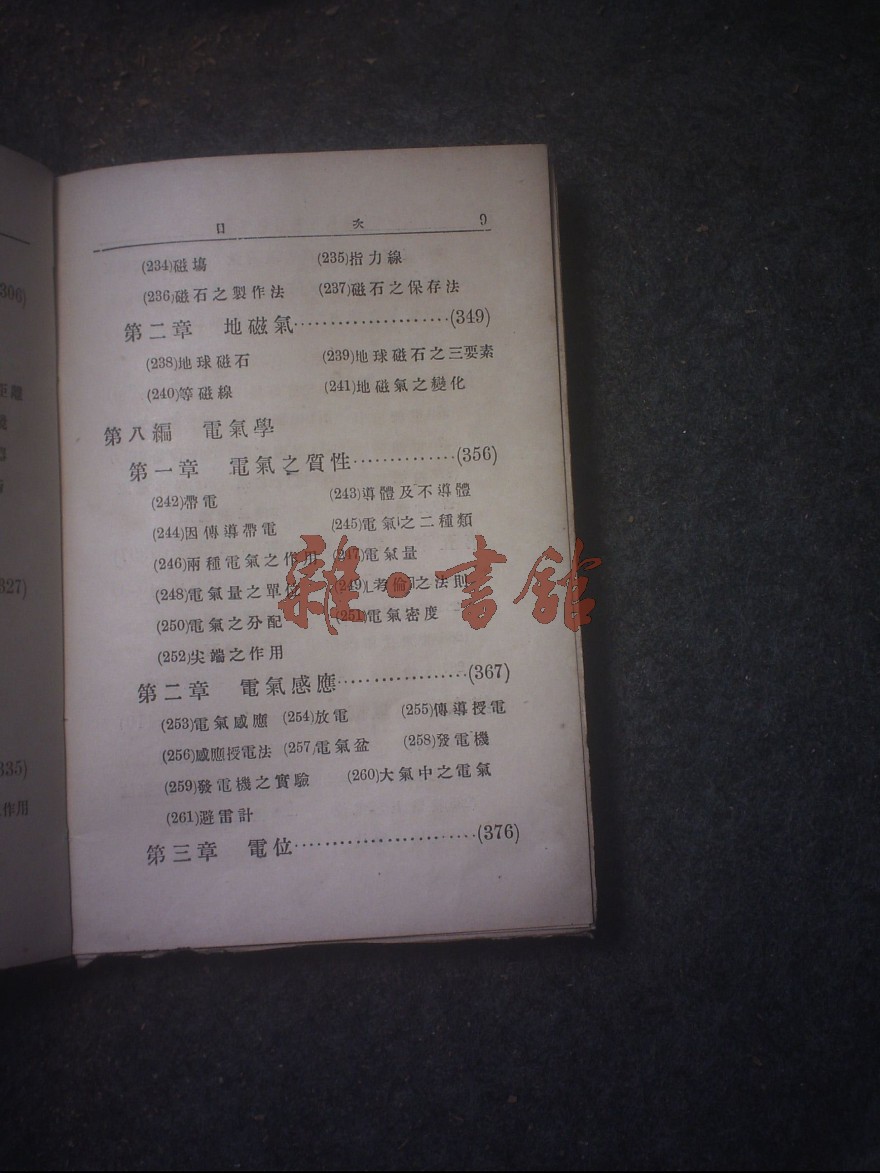 306)
距離
327)
335)
作用
目 次 9
(234)磁場 (235)指力線
(236)磁石之製作法 (237)磁石之保存法
第二章 地磁氣······················(349)
(238)地球磁石 (239)地球磁石之三要素
(240)等磁線 (241)地磁氣之變化
第八編 電氣學
第一章 電氣之質性··············(356)
(242)帶電 (243)導體及不導體
(244)因傳導帶電 (245)電氣之二種類
(246)兩種電氣之作用 (247)電氣量
(248)電氣量之單位 (249)「考倫」之法則
(250)電氣之分配 (251)電氣密度
(252)尖端之作用
第二章 電氣感應···················(367)
(253)電氣感應 (254)放電 (255)傳導授電
(256)感應授電法 (257)電氣盆 (258)發電機
(259)發電機之實驗 (260)大氣中之電氣
(261)避雷計
第三章 電位··························(376)
雜·書館